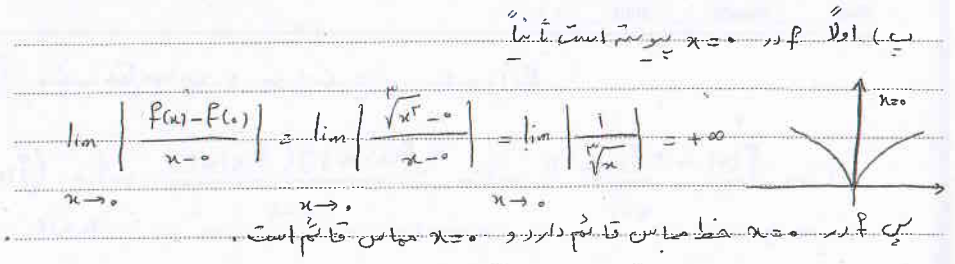 ب) اولاً f در x=۰ پیوسته است ثانیاً
lim_{x→۰} | (f(x)-f(۰)) / (x-۰) | = lim_{x→۰} | (∛x² - ۰) / (x-۰) | = lim_{x→۰} | ۱ / ∛x | = +∞
x=۰
پس f در x=۰ خط مماس قائم دارد و x=۰ مماس قائم است.